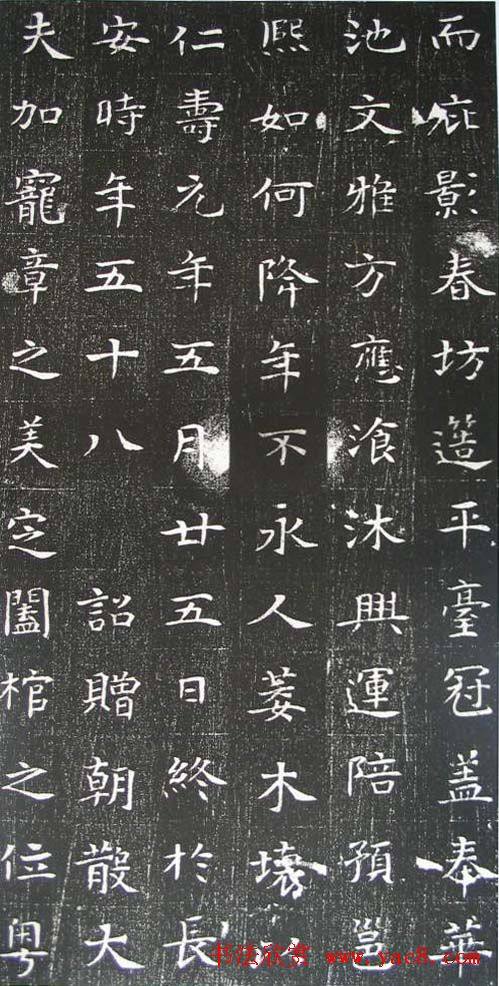 而庇影春坊簉平臺冠盖奉華
池文雅方應湌沐興運陪預邕
熙如何降年不永人萎木壞
仁壽元年五月廿五日終於長
安時年五十八 詔贈朝散大
夫加寵章之美定闔棺之位粤
书法欣赏 www.yac8.com